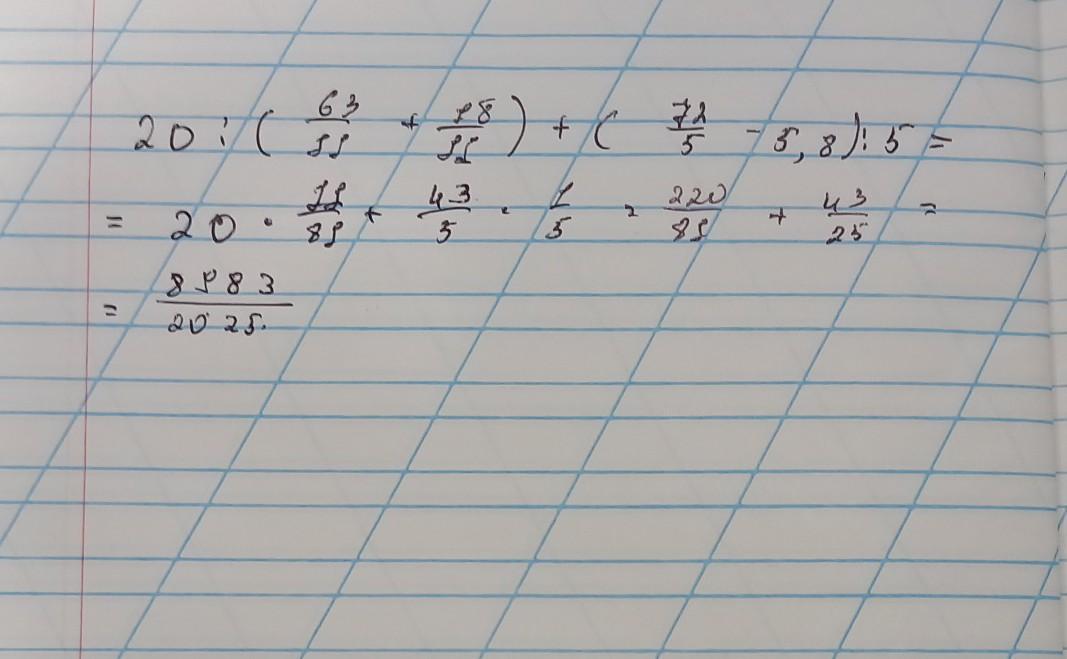 20 : ( 63/11 + 18/11 ) + ( 72/5 - 5,8 ) : 5 =
= 20 · 11/81 + 43/5 · 1/5 = 220/81 + 43/25 =
= 8983/2025.